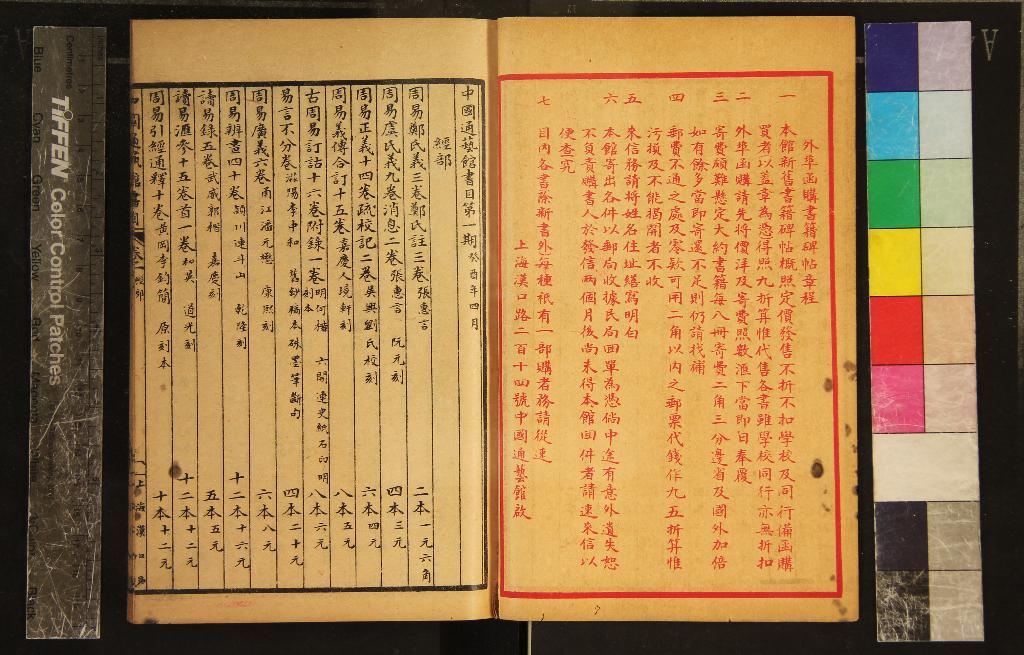 外埠函購書籍碑帖章程
一 本館新舊書籍碑帖概照定價發售不折不扣學校及同行備函購
買者以蓋章為憑得照九折算惟代售各書雖學校同行亦無折扣
二 外埠函購請先將價洋及寄費照數滙下當即日奉覆
三 寄費頗難懸定大約書籍每八冊寄費二角三分邊省及國外加倍
如有餘多當即寄還不足則仍請找補
四 郵費不通之處及零欵可用二角以內之郵票代錢作九五折算惟
污損及不能揭開者不收
五 來信務請將姓名住址繕寫明白
六 本館寄出各件以郵局收據民局回單為憑倘中途有意外遺失恕
不負責購書人於發信兩個月後尚未得本館回件者請速來信以
便查究
七 目內各書除新書外每種祇有一部購者務請從速
上海漢口路二百十四號中國通藝館啟
中國通藝館書目第一期 癸酉年四月
經部
周易鄭氏義三卷鄭氏註三卷 張惠言 二本 一元六角
周易虞氏義九卷消息二卷 張惠言 阮元刻 四本 三元
周易正義十四卷疏校記二卷 吳興劉氏校刻 六本 四元
周易義傳合訂十五卷 嘉慶人境軒刻 八本 五元
古周易訂詁十六卷附錄一卷 明何楷 六開連史紙石印明刻本 八本 六元
易言不分卷 滋陽李中和 舊鈔稿本硃墨筆斷句 四本 二十元
周易廣義六卷 甬江潘元懋 康熙刻 六本 八元
周易辨畫四十卷 潁川連斗山 乾隆刻 十二本 十六元
讀易錄五卷 武威郭楷 嘉慶刻 五本 五元
讀易滙參十五卷首一卷 和瑛 道光刻 十二本 十二元
周易引經通釋十卷 黃岡李鈞簡 原刻本 十本 十二元
上海漢口路